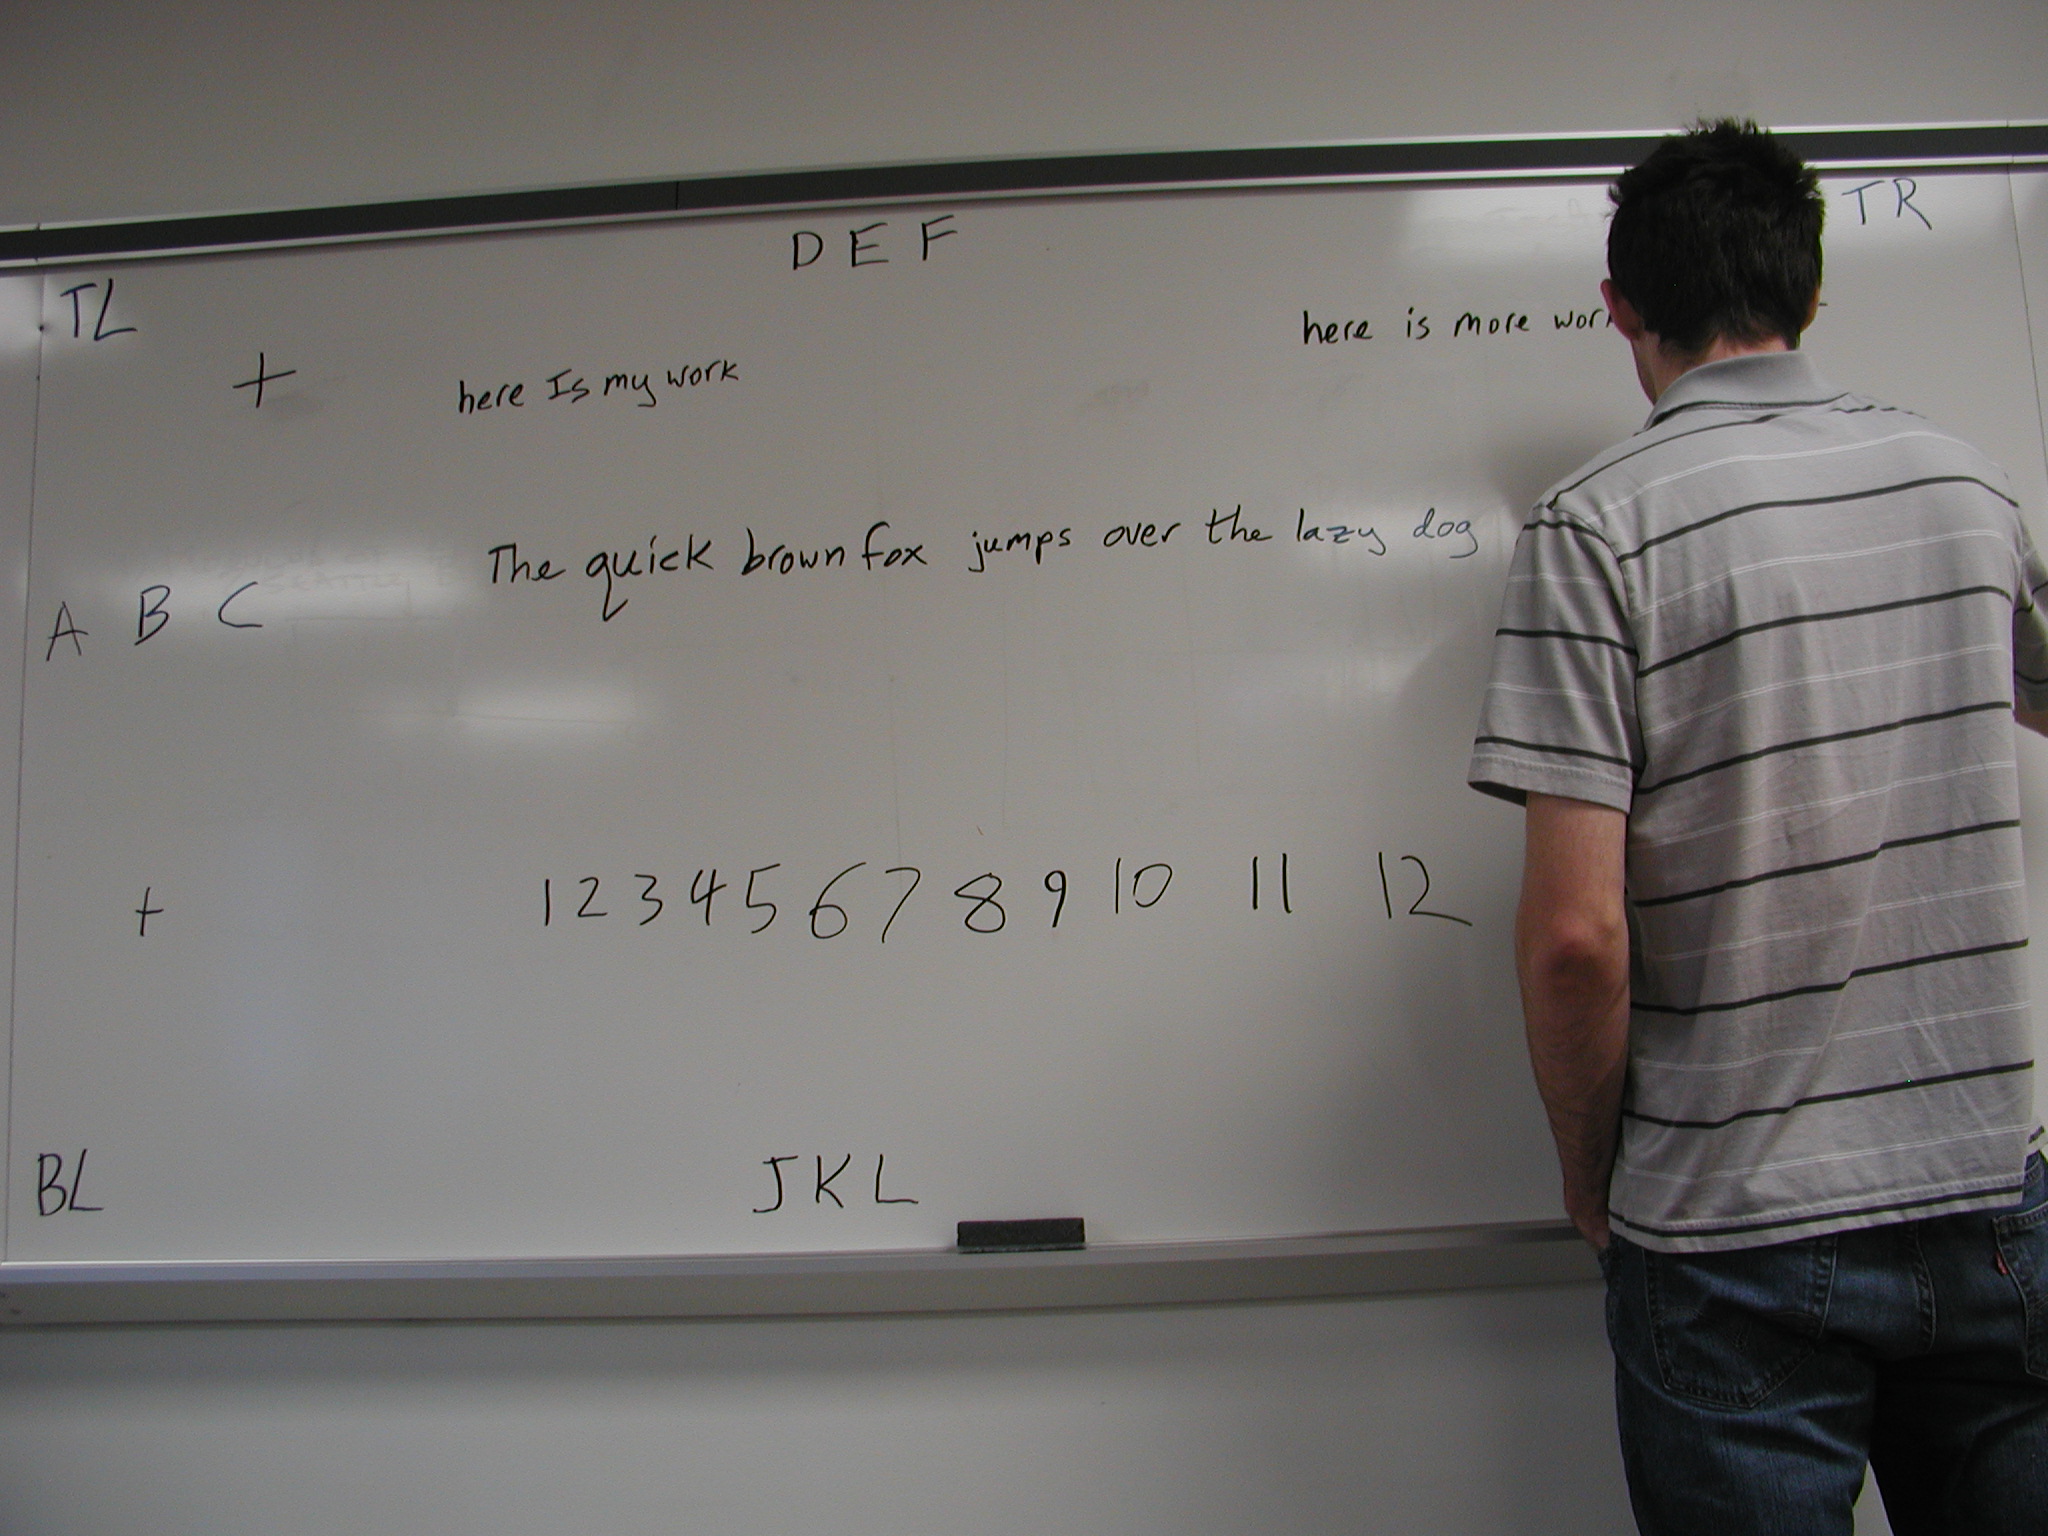 D E F
TR
TL
+
here Is my work
here is more work
The quick brown fox jumps over the lazy dog
A B C
+
1 2 3 4 5 6 7 8 9 10 11 12
BL
J K L